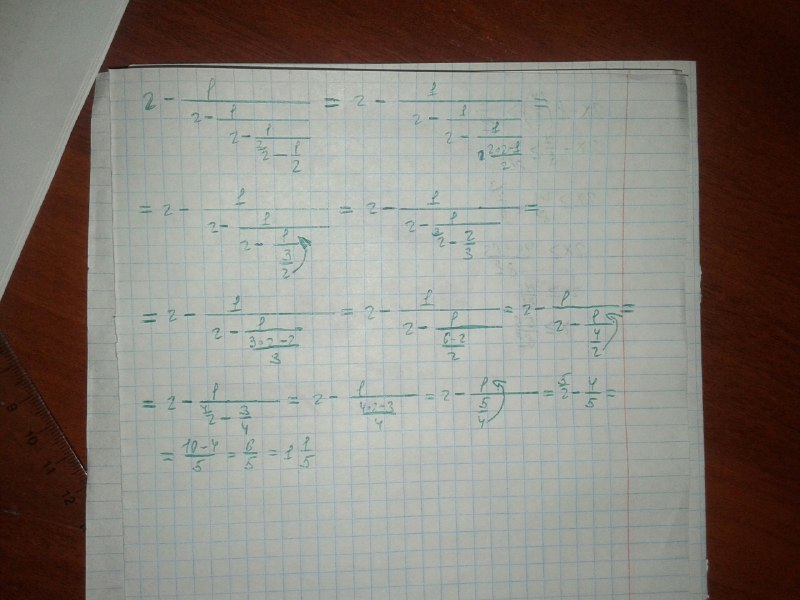 2 - 1/(2 - 1/(2 - 1/(2 - 1/2))) = 2 - 1/(2 - 1/(2 - 1/((2·2-1)/2))) =
= 2 - 1/(2 - 1/(2 - 1/(3/2))) = 2 - 1/(2 - 1/(2 - 2/3)) =
= 2 - 1/(2 - 1/((3·2-2)/3)) = 2 - 1/(2 - 1/((6-2)/2)) = 2 - 1/(2 - 1/(4/2)) =
= 2 - 1/(2 - 3/4) = 2 - 1/((4·2-3)/4) = 2 - 1/(5/4) = 2 - 4/5 =
= (10-4)/5 = 6/5 = 1 1/5
9 10 11 12